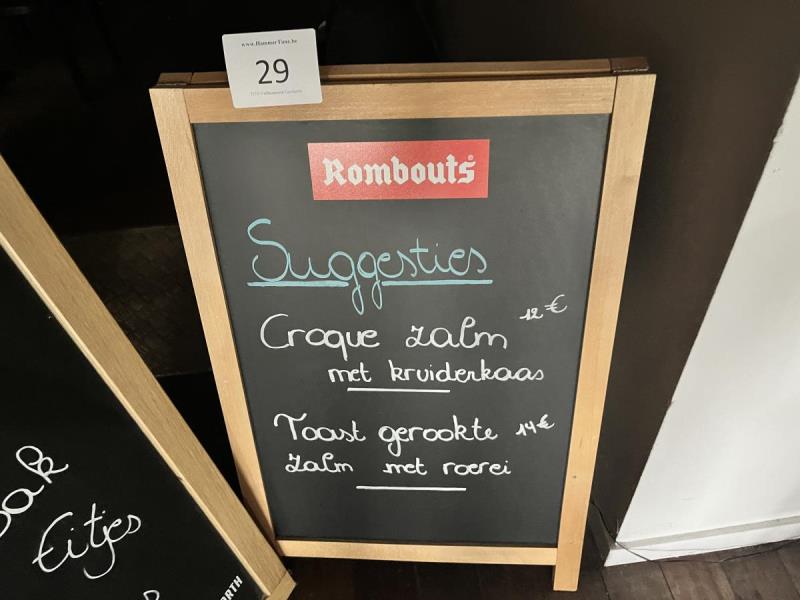 www.HammerTime.be
29
Rombouts
Suggesties
Croque zalm 12€
met kruiderkaas
Toast gerookte 14€
zalm met roerei
Eitjes